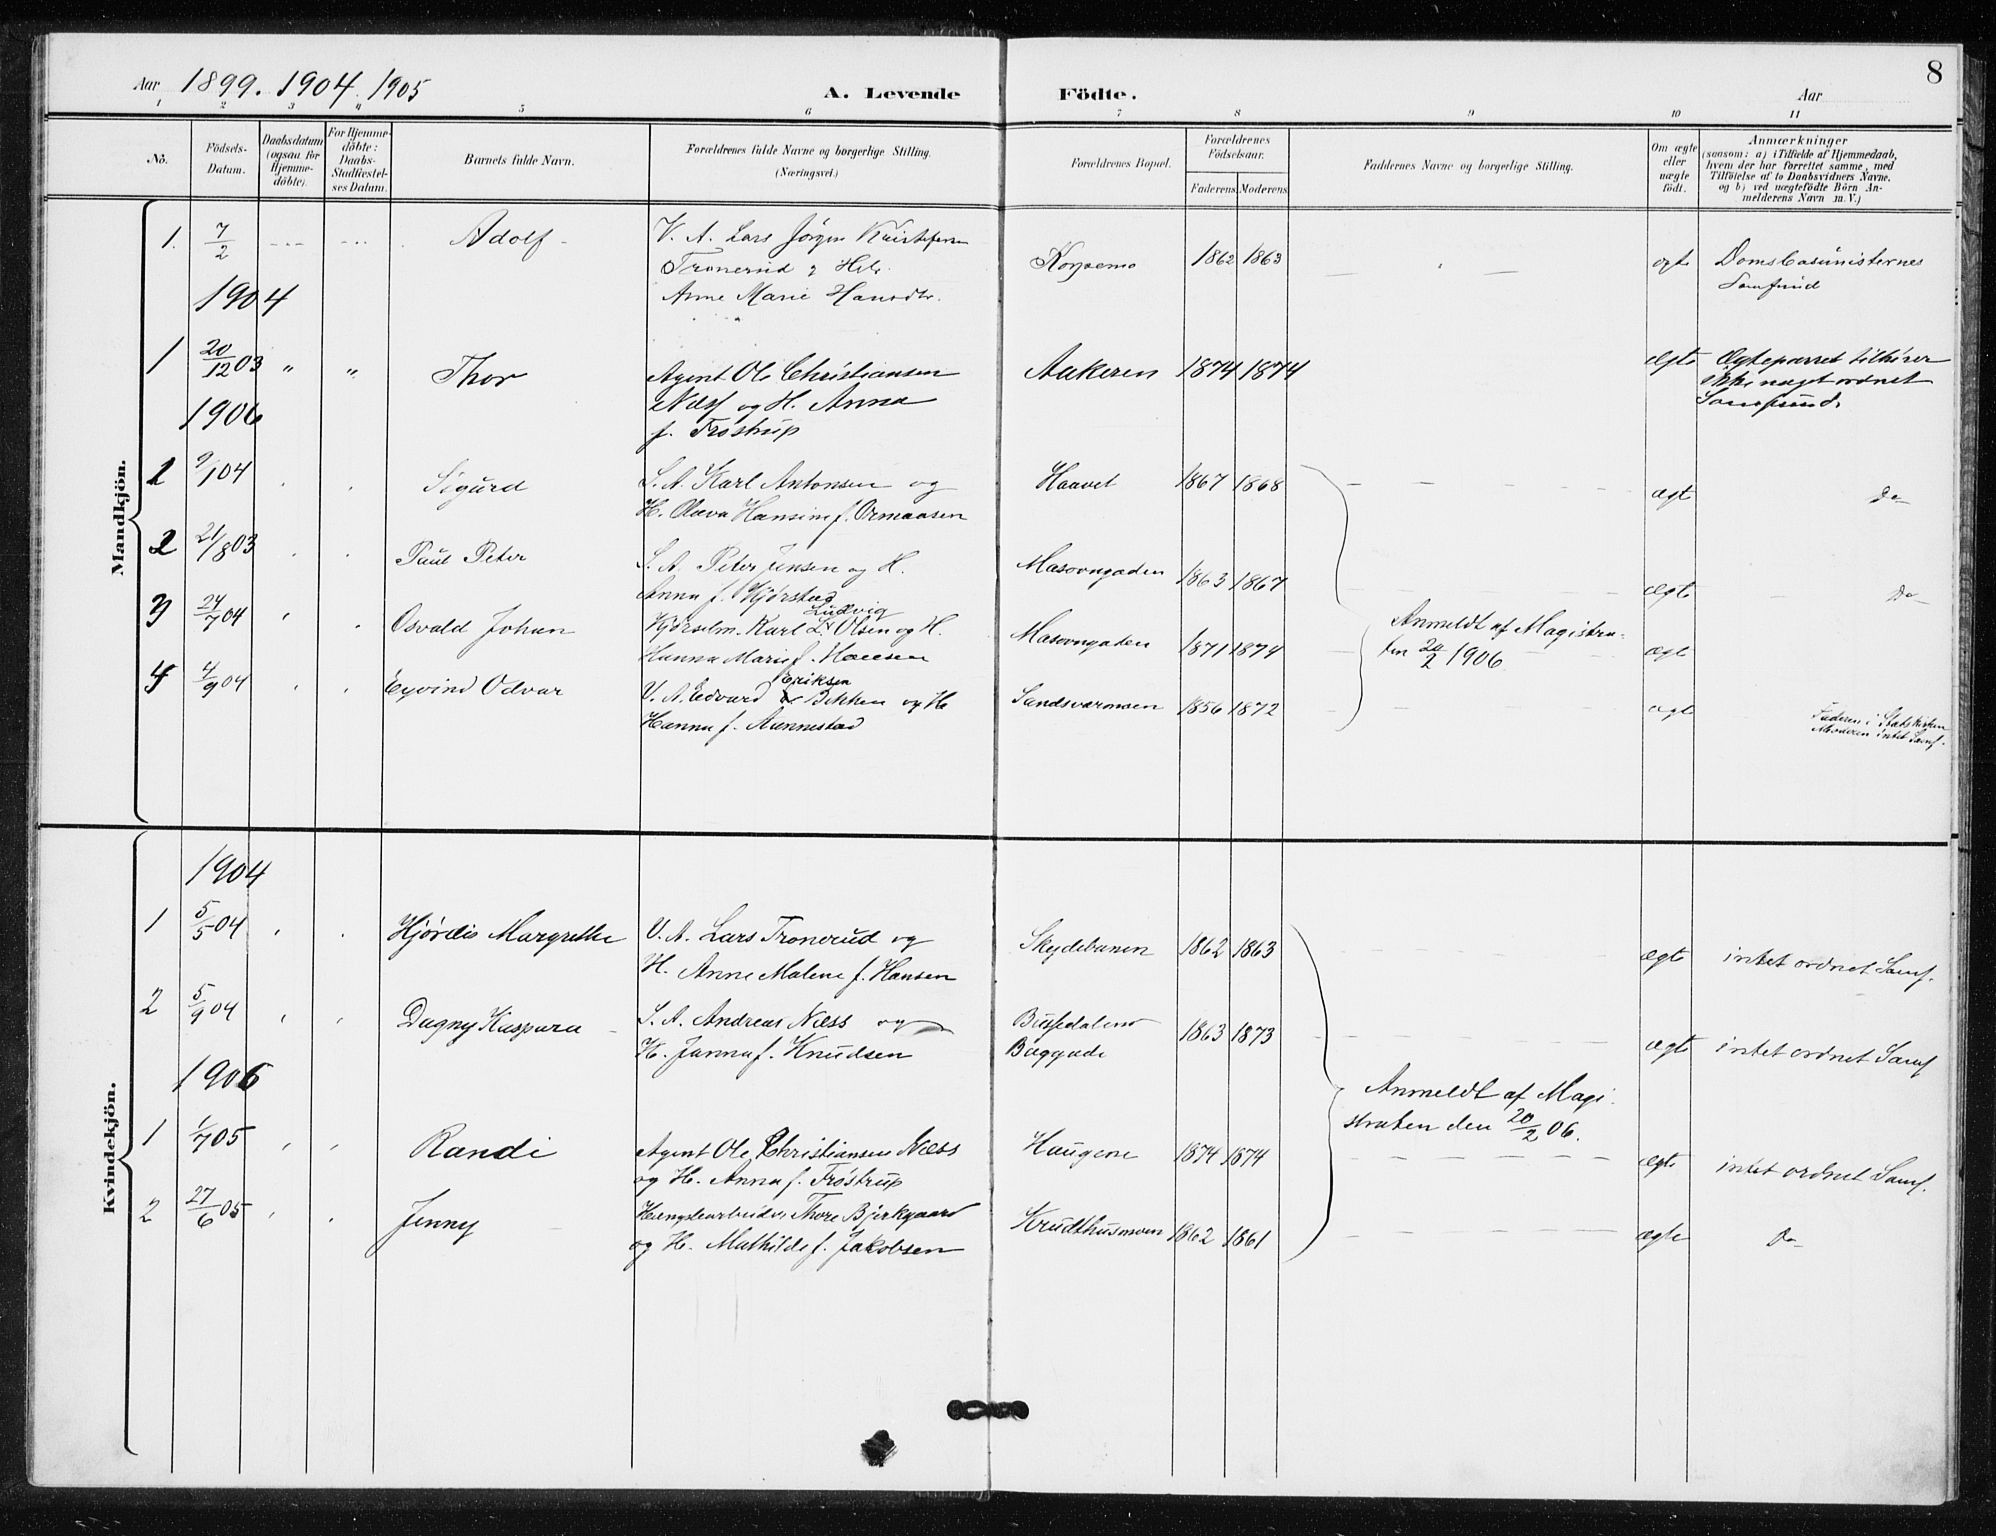 Aar 1899. 1904. 1905
A. Levende Födte.
Aar
8
1 2 3 4 5 6 7 8 9 10 11
No.
Födsels-Datum.
Daabsdatum (ogsaa for Hjemme-döbte).
For Hjemme-döbte: Daabs-Stadfæstel-ses Datum.
Barnets fulde Navn.
Forældrenes fulde Navne og borgerlige Stilling. (Næringsvei.)
Forældrenes Bopæl.
Forældrenes Födselsaar.
Faderens Moderens
Faddernes Navne og borgerlige Stilling.
Om ægte eller uægte födt.
Anmærkninger
(saasom: a) i Tilfælde af Hjemmedaab,
hvem der har forrettet samme, med
Tilföielse af to Daabsvidners Navne.
og b) ved uægtefödte Börn An-
melderens Navn m. V.)
Mandkjön.
1. 7/2 Adolf V. A. Lars Jörgen Kristofersen 1862 1863 ægte Domsbasunisternes
Tronerud & Hst. Samfund
Anne Marie Hansdtr.
1904
1 20/12 03 " " Thor Agent Ole Christiansen Aakeren 1874 1874 ægte Ægteparret tilhører
Næss og H. Anna ikke noget ordnet
f. Trøstrup Samfund.
1906
1 9/1 04 Sigurd S. A. Karl Antonsen og Haavet 1867 1868 ægt Do
H. Olava Hansine f. Ormaasen
2 21/8 03 Paul Peter S. A. Peter Jensen og H. Masovngaden 1863 1867 ægte Do
Anna f. Kjørstad
3 24/7 04 Osvald Johan Kjørselm. Karl Ludvig Olsen og H. Masovngaden 1871 1874 ægt
Hanna Marie f. Hansen
4 4/9 04 Eyvind Odvar V. A. Edvard Eriksen Bekken og H. Sandsværmoen 1856 1872 ægt Faderen i Statskirken
Hanna f. Aannestad Moderen intet Samf.
Anmeldt af Magistra-
ten 20/2 1906
Kvindekjön.
1904
1 5/5 04 Hjørdis Margrethe V. A. Lars Tronerud og Skydebanen 1862 1863 ægte intet ordnet Samf.
H. Anne Malene f. Hansen
2 5/9 04 Dagny Kaspara S. A. Andreas Næss og 1863 1873 ægte intet ordnet Samf
H. Janna f. Knudsen Baggade
1906
1 1/7 05 Randi Agent Ole Christiansen Næss Haugene 1874 1874 ægte intet ordnet Samf.
og H. Anna f. Trøstrup
2 27/6 05 Jenny Thore Bjerkgaard Krudthusmoen 1862 1861 ægte Do
og H. Mathilde f. Jakobsen
Anmeldt af Magi-
straten den 20/2 06.